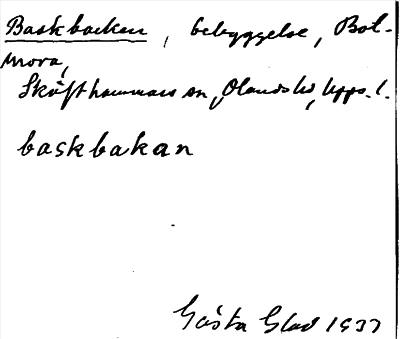 Baskbacken, bebyggelse, Bol-
mora,
Skäfthammars sn, Olands hd, Upps. l.
baskbakan
Gösta Glad 1937